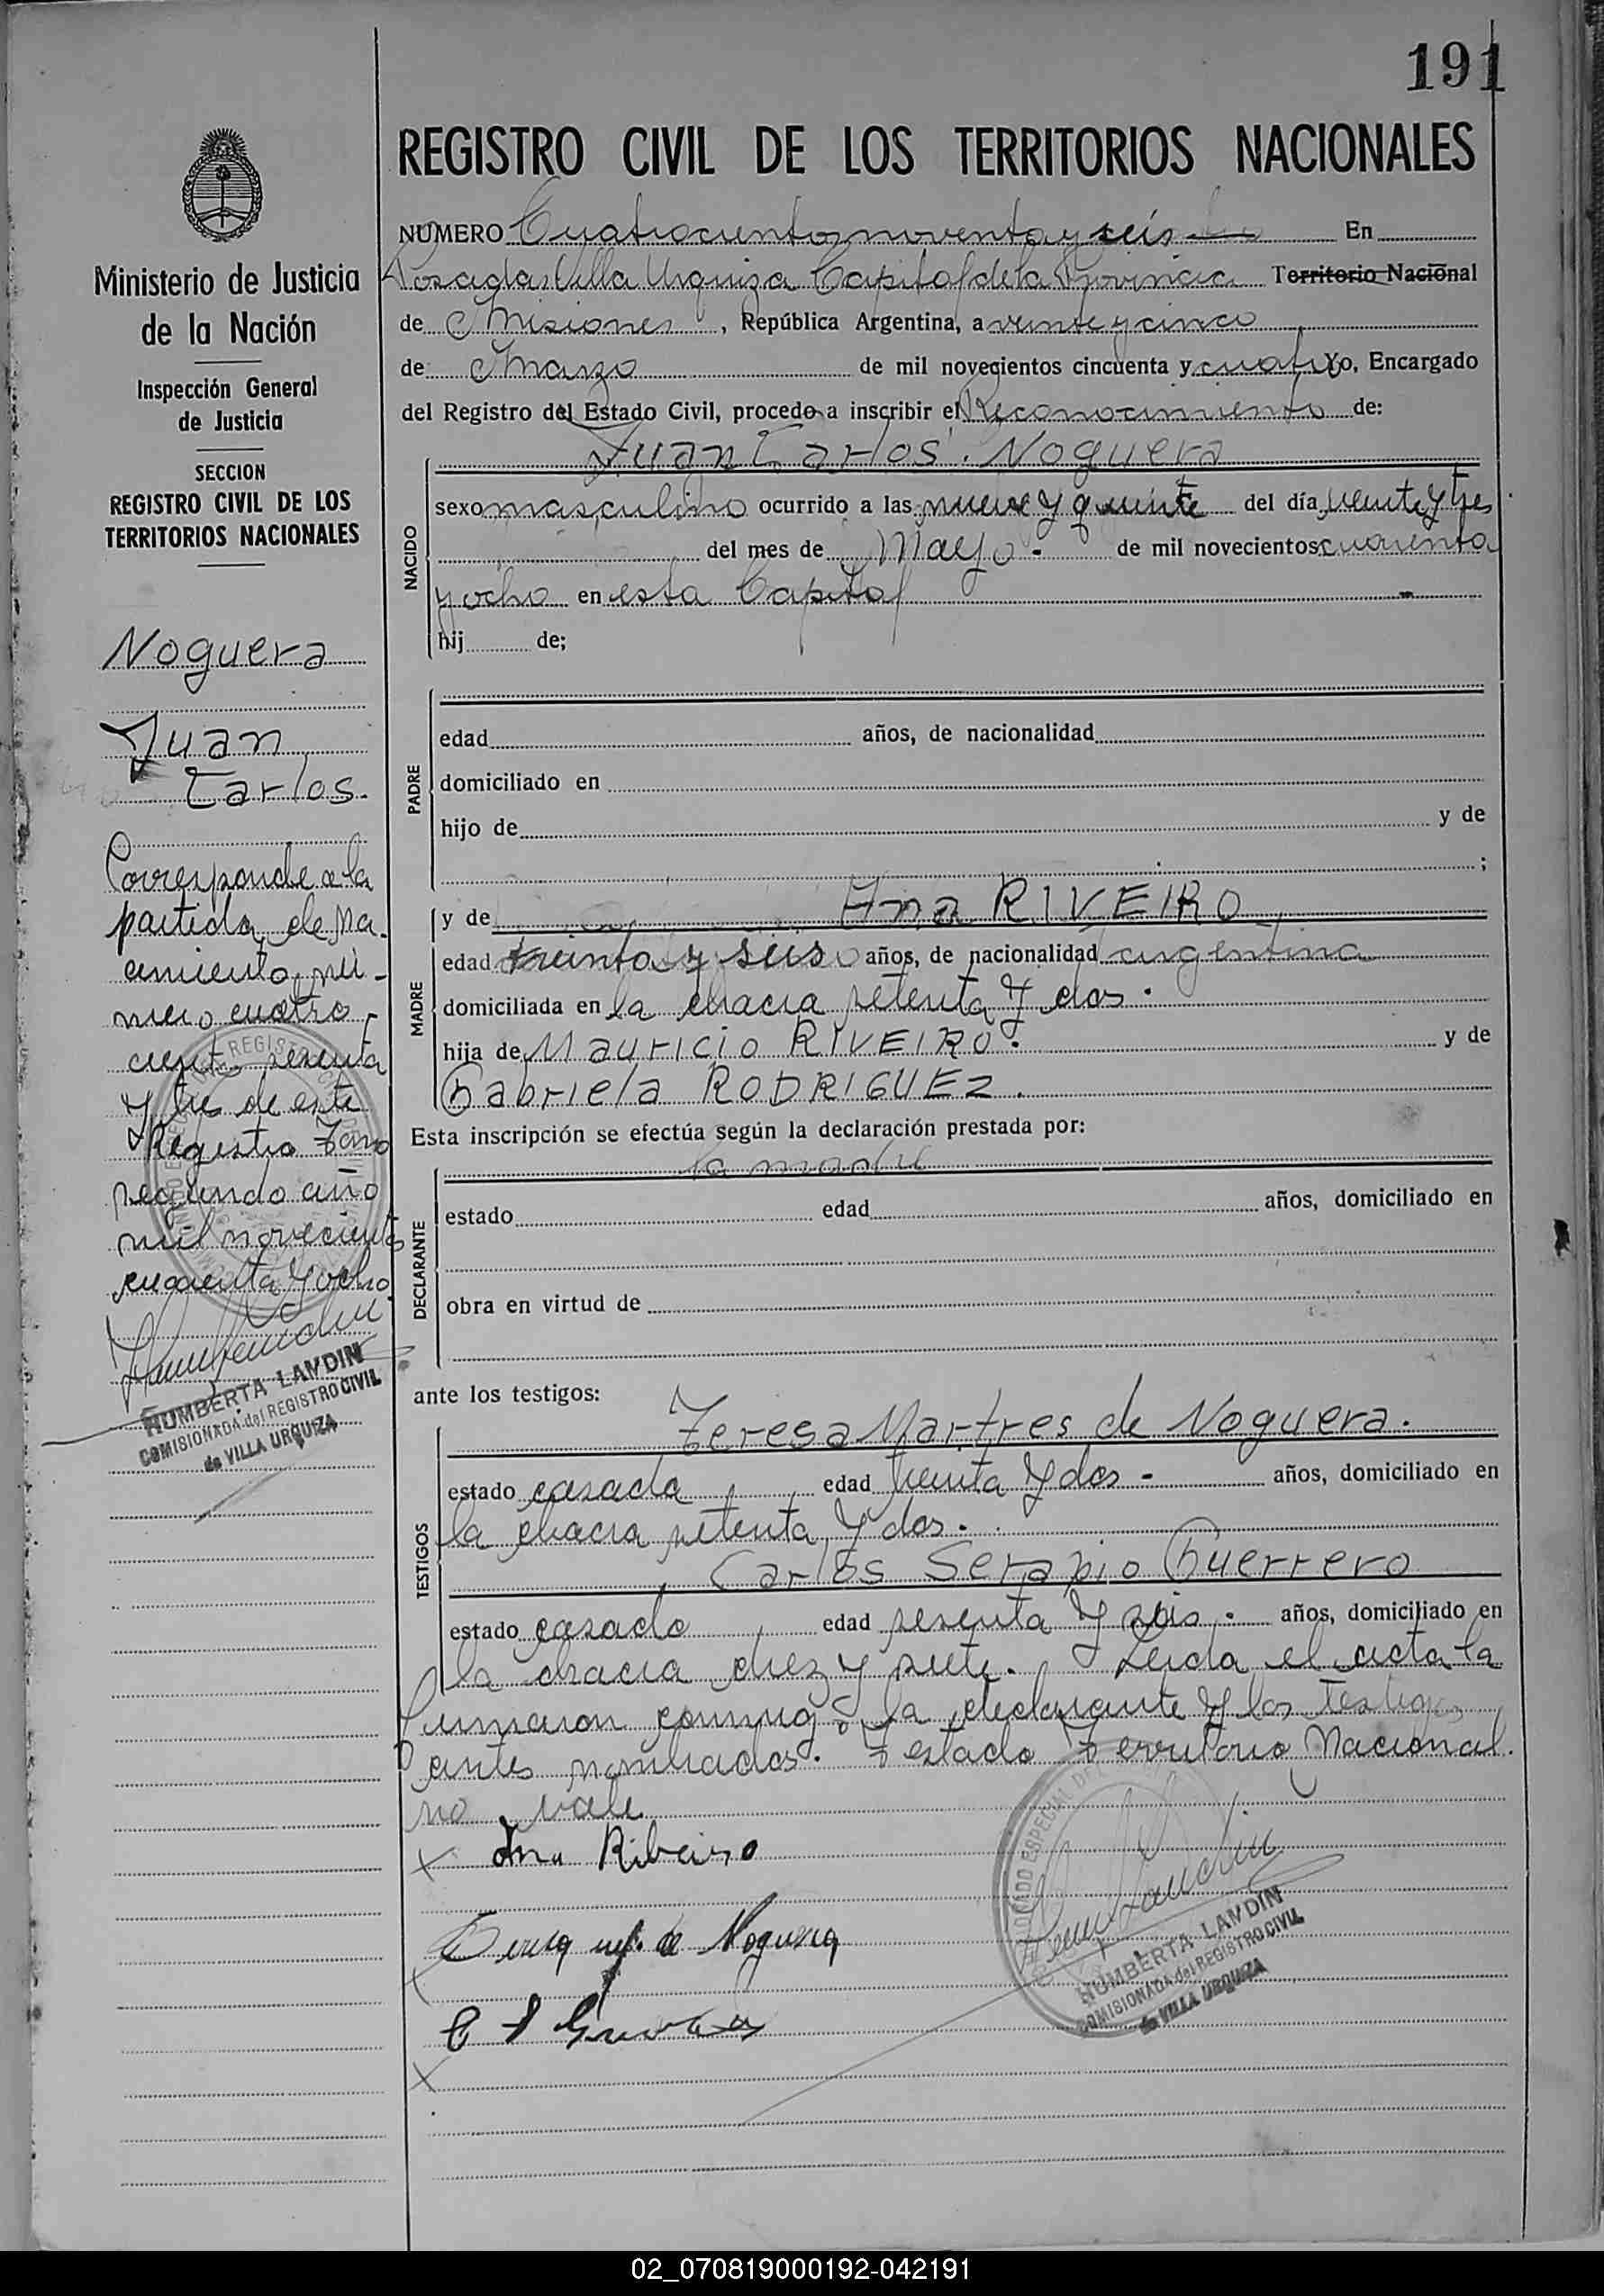 191
REGISTRO CIVIL DE LOS TERRITORIOS NACIONALES
NUMERO Cuatrocientos noventa y seis En
Posadas Villa Urquiza Capital de la Provincia Territorio Nacional
de Misiones, República Argentina, a veinte y cinco
de Marzo de mil novecientos cincuenta y cuatro Yo, Encargado
del Registro del Estado Civil, procedo a inscribir el Reconocimiento de:
Juan Carlos. Noguera
NACIDO
sexo masculino ocurrido a las nueve y quince del día veinte y tres
del mes de Mayo.- de mil novecientos cuarenta
y ocho en esta Capital
hij de;
PADRE
edad años, de nacionalidad
domiciliado en
hijo de y de
;
MADRE
y de Ana RIVEIRO
edad treinta y seis años, de nacionalidad argentina
domiciliada en la chacra setenta y dos.
hija de Mauricio RIVEIRO. y de
Gabriela RODRIGUEZ.
Esta inscripción se efectúa según la declaración prestada por:
DECLARANTE
la madre
estado edad años, domiciliado en
obra en virtud de
ante los testigos:
TESTIGOS
Teresa Martres de Noguera.
estado casada edad treinta y dos - años, domiciliado en
la chacra setenta y dos.
Carlos Serapio Guerrero
estado casado edad sesenta y seis. años, domiciliado en
la chacra diez y siete. Leida el acta la
firmaron conmigo la declarante y los testigos
antes nombrados. Testado Territorio Nacional.
no vale.
x Ana Ribeiro
Teresa M. de Noguera
C S Guerrero
x
HUMBERTA LANDIN
COMISIONADA del REGISTRO CIVIL
de VILLA URQUIZA
Ministerio de Justicia
de la Nación
Inspección General
de Justicia
SECCION
REGISTRO CIVIL DE LOS
TERRITORIOS NACIONALES
Noguera
Juan
Carlos.
Corresponde a la
partida de na-
cimiento nú-
mero cuatro-
cient sesenta
y tres de este
Registro Tomo
segundo año
mil novecientos
cuarenta y ocho
HUMBERTA LANDIN
COMISIONADA del REGISTRO CIVIL
de VILLA URQUIZA
02_070819000192-042191